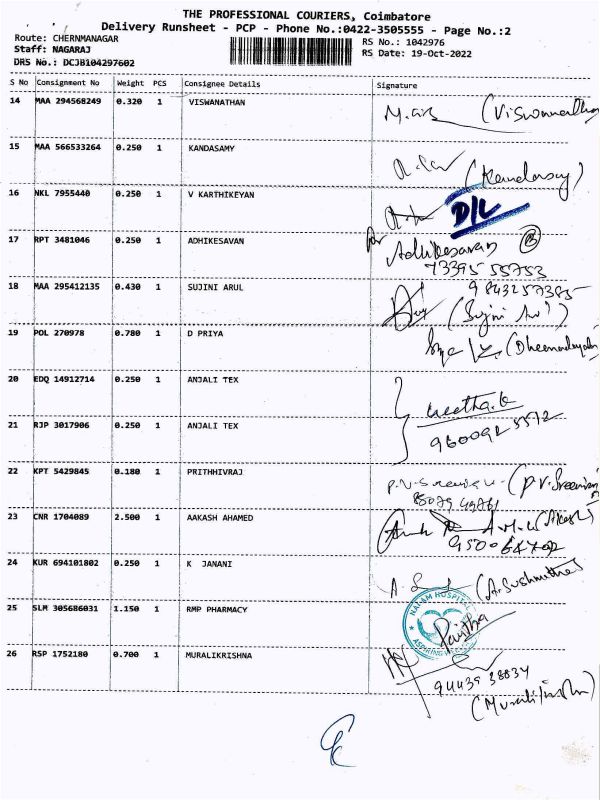 THE PROFESSIONAL COURIERS, Coimbatore
Delivery Runsheet - PCP - Phone No.:0422-3505555 - Page No.:2
Route: CHERNMANAGAR RS No.: 1042976
Staff: NAGARAJ RS Date: 19-Oct-2022
DRS No.: DCJB104297602
S No Consignment No Weight PCS Consignee Details Signature
14 MAA 294568249 0.320 1 VISWANATHAN (Viswanathan
15 MAA 566533264 0.250 1 KANDASAMY (Kandasay)
16 NKL 7955440 0.250 1 V KARTHIKEYAN D/L
17 RPT 3481046 0.250 1 ADHIKESAVAN Adhikesavan
73395 55753
18 MAA 295412135 0.430 1 SUJINI ARUL 9843257385
(Sujini
19 POL 270978 0.780 1 D PRIYA
20 EDQ 14912714 0.250 1 ANJALI TEX Geetha.k
21 RJP 3017906 0.250 1 ANJALI TEX
22 KPT 5429845 0.180 1 PRITHHIVRAJ
23 CNR 1704089 2.500 1 AAKASH AHAMED
24 KUR 694101802 0.250 1 K JANANI
25 SLM 305686031 1.150 1 RMP PHARMACY HOSPITAL
Pavitha
26 RSP 1752180 0.700 1 MURALIKRISHNA
94439 38834